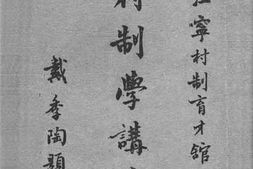 寧村制育才館
制學講
戴季陶題